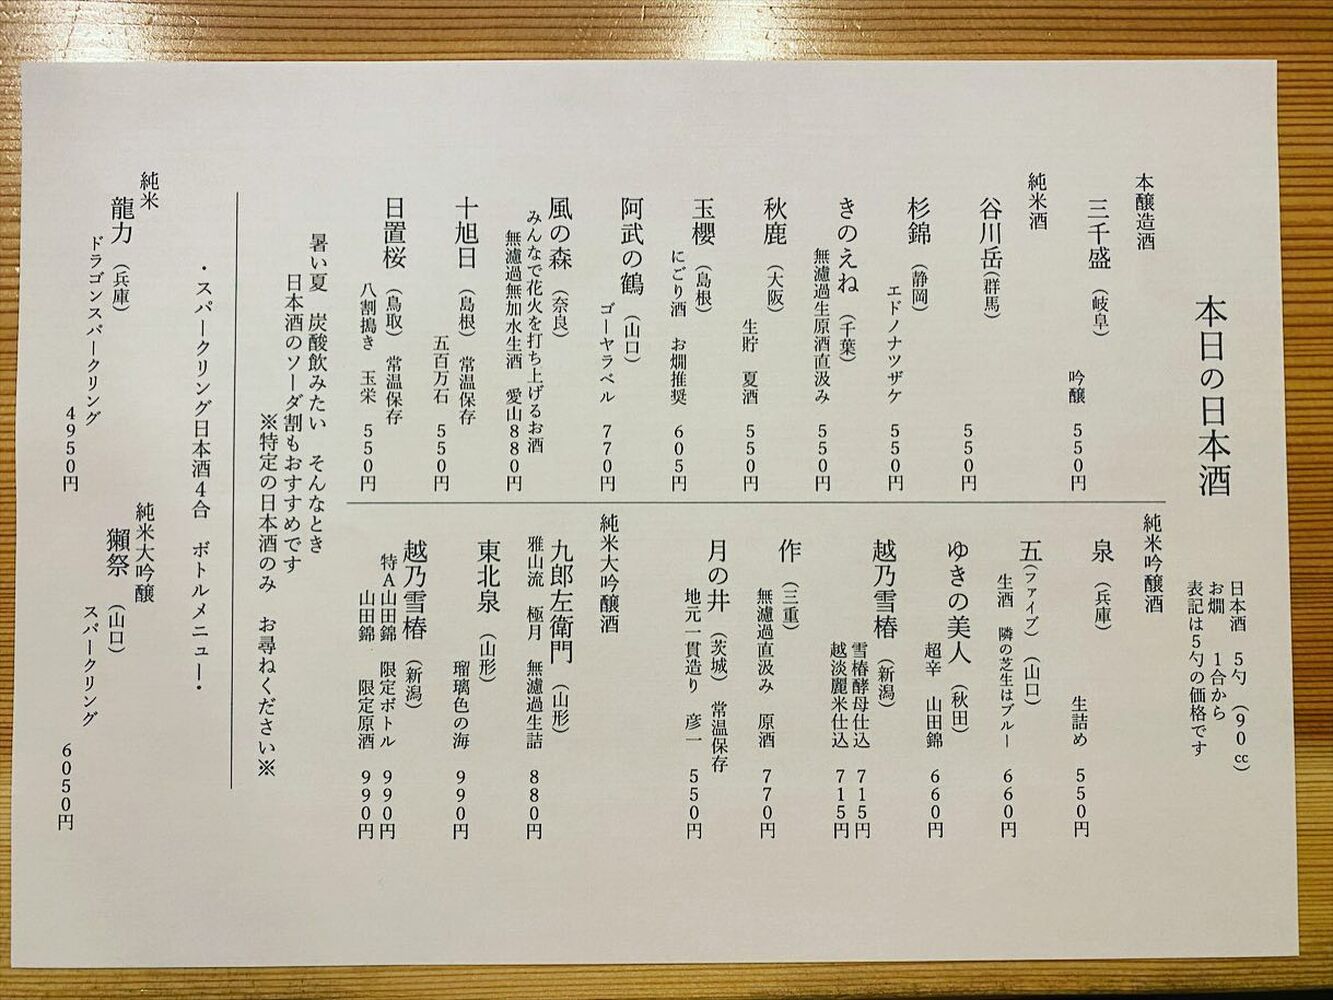 本日の日本酒
日本酒 5勺 (90㏄)
お燗 1合から
表記は5勺の価格です
本醸造酒
三千盛 (岐阜)
吟醸 550円
純米酒
谷川岳(群馬)
550円
杉錦 (静岡)
エドノナツザケ 550円
きのえね (千葉)
無濾過生原酒直汲み 550円
秋鹿 (大阪)
生貯 夏酒 550円
玉櫻 (島根)
にごり酒 お燗推奨 605円
阿武の鶴 (山口)
ゴーヤラベル 770円
風の森 (奈良)
みんなで花火を打ち上げるお酒
無濾過無加水生酒 愛山880円
十旭日 (島根) 常温保存
五百万石 550円
日置桜 (鳥取) 常温保存
八割搗き 玉栄 550円
純米吟醸酒
泉 (兵庫)
生詰め 550円
五(ファイブ) (山口)
生酒 隣の芝生はブルー 660円
ゆきの美人 (秋田)
超辛 山田錦 660円
越乃雪椿 (新潟)
雪椿酵母仕込 715円
越淡麗米仕込 715円
作 (三重)
無濾過直汲み 原酒 770円
月の井 (茨城) 常温保存
地元一貫造り 彦一 550円
純米大吟醸酒
九郎左衛門 (山形)
雅山流 極月 無濾過生詰 880円
東北泉 (山形)
瑠璃色の海 990円
越乃雪椿 (新潟)
特A山田錦 限定ボトル 990円
山田錦 限定原酒 990円
暑い夏 炭酸飲みたい そんなとき
日本酒のソーダ割もおすすめです
※特定の日本酒のみ お尋ねください※
・スパークリング日本酒4合 ボトルメニュー・
純米
龍力 (兵庫)
ドラゴンスパークリング
4950円
純米大吟醸
獺祭 (山口)
スパークリング
6050円